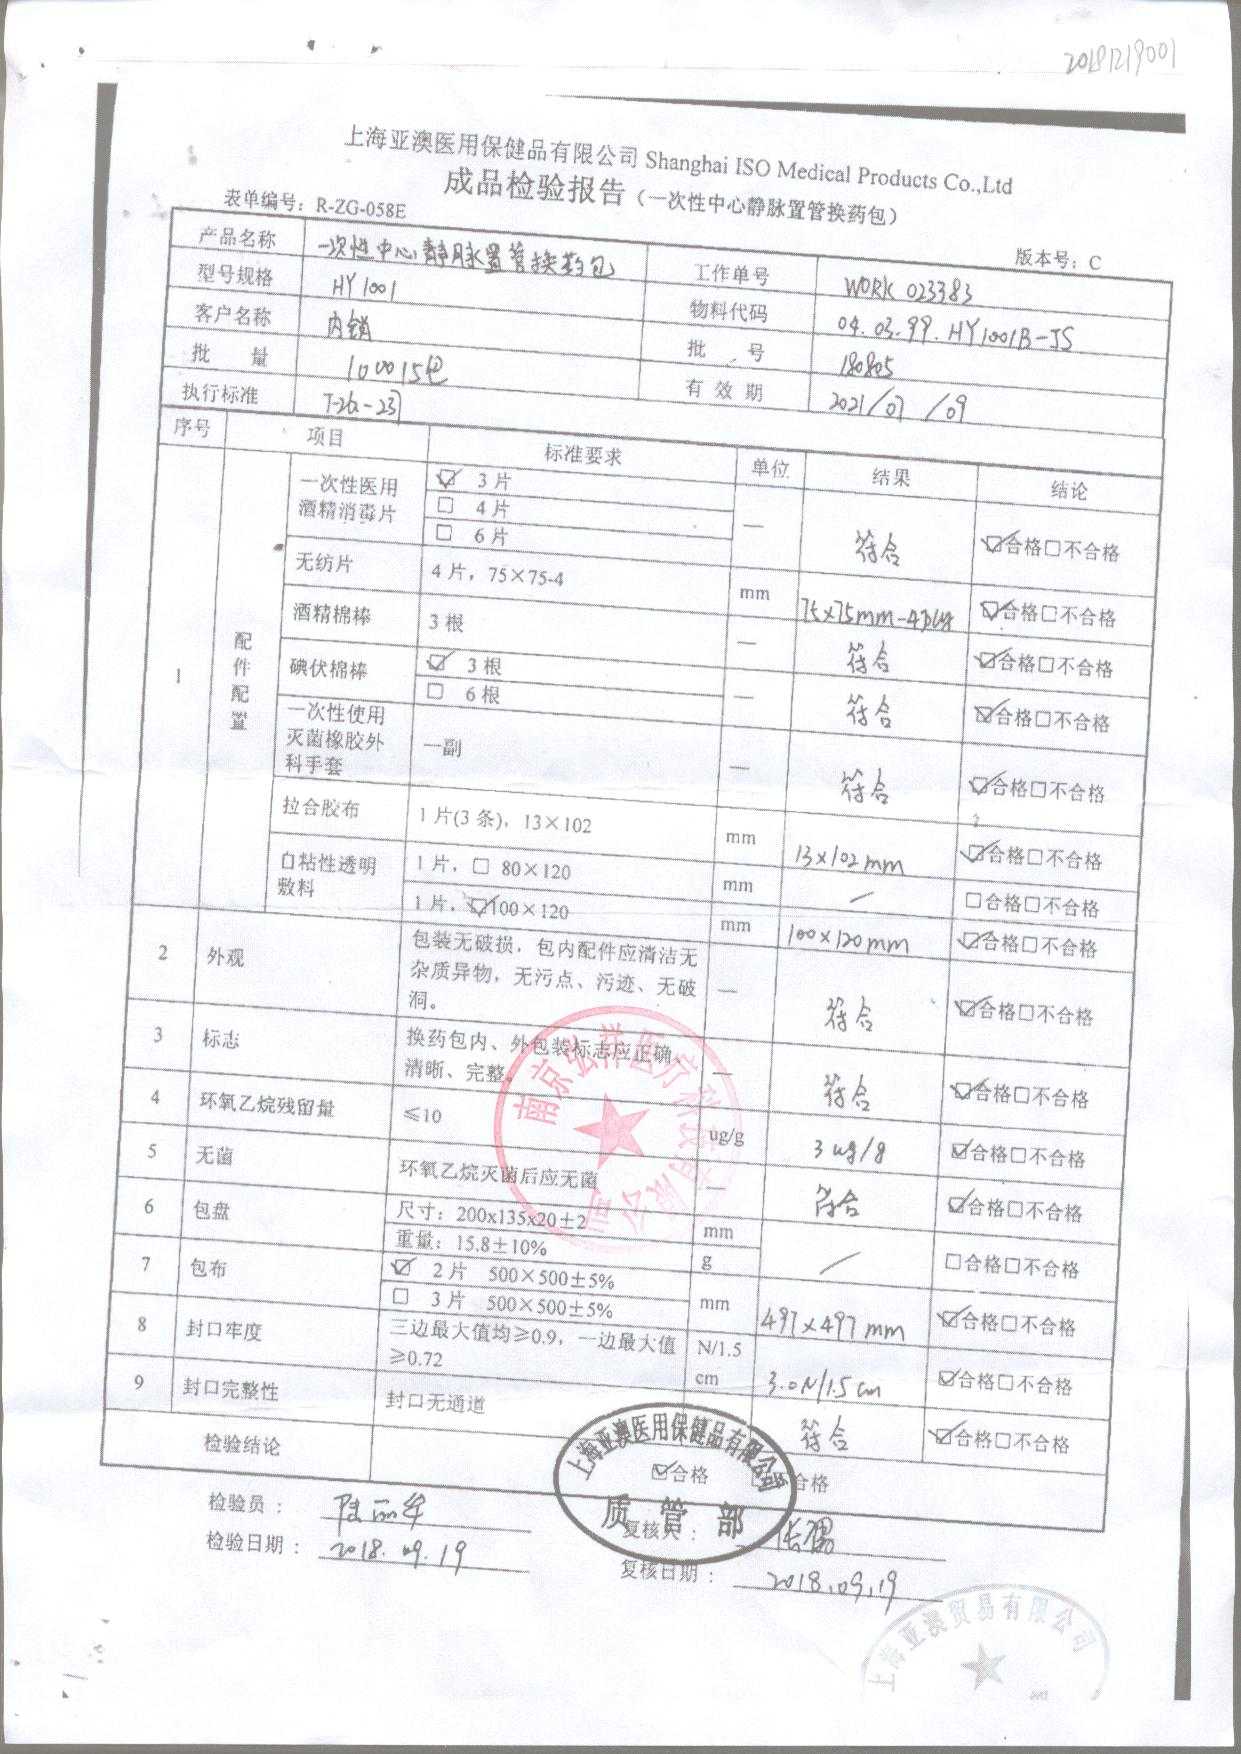 20181219001
上海亚澳医用保健品有限公司 Shanghai ISO Medical Products Co.,Ltd
成品检验报告（一次性中心静脉置管换药包）
表单编号：R-ZG-058E
版本号：C
产品名称 一次性中心静脉置管换药包 工作单号 WORK 023383
型号规格 HY1001 物料代码 04.03.99.HY1001B-JS
客户名称 内销 批 号 180805
批 量 100015包 有效期 2021/07/09
执行标准
序号 项目 标准要求 单位 结果 结论
1 配件配置
一次性医用酒精消毒片 ☑ 3片 — 符合 ☑合格□不合格
□ 4片
□ 6片
无纺片 4片，75×75-4 mm 75x75mm-4ply ☑合格□不合格
酒精棉棒 3根 — 符合 ☑合格□不合格
碘伏棉棒 ☑ 3根 — 符合 ☑合格□不合格
□ 6根
一次性使用灭菌橡胶外科手套 一副 — 符合 ☑合格□不合格
拉合胶布 1片(3条)，13×102 mm 13x102mm ☑合格□不合格
自粘性透明敷料 1片，□ 80×120 mm / □合格□不合格
1片，☑100×120 mm 100x120mm ☑合格□不合格
2 外观 包装无破损，包内配件应清洁无杂质异物，无污点、污迹、无破洞。 — 符合 ☑合格□不合格
3 标志 换药包内、外包装标志应正确、清晰、完整。 — 符合 ☑合格□不合格
4 环氧乙烷残留量 ≤10 ug/g 3ug/g ☑合格□不合格
5 无菌 环氧乙烷灭菌后应无菌 — 符合 ☑合格□不合格
6 包盘 尺寸：200x135x20±2 mm / □合格□不合格
重量：15.8±10% g
7 包布 ☑ 2片 500×500±5% mm 497x497mm ☑合格□不合格
□ 3片 500×500±5%
8 封口牢度 三边最大值均≥0.9，一边最大值≥0.72 N/1.5cm 3.0N/1.5cm ☑合格□不合格
9 封口完整性 封口无通道 符合 ☑合格□不合格
检验结论 ☑合格 合格
上海亚澳医用保健品有限公司
质管部
检验员： 陆丽华 复核人：
检验日期： 2018.09.19 复核日期： 2018.09.19
上海亚澳贸易有限公司